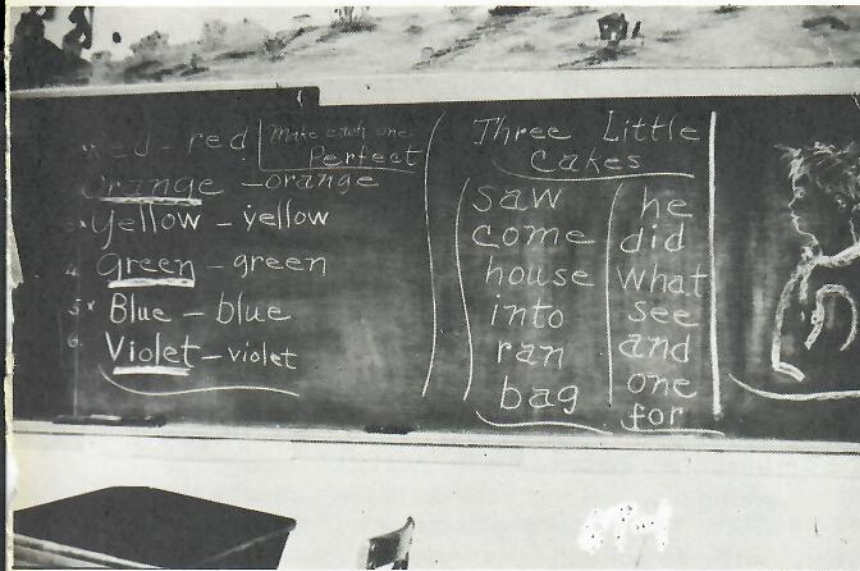 Red - red
Make each one
Perfect
Orange - orange
3 × Yellow - yellow
4 Green - green
5 × Blue - blue
6. Violet - violet
Three Little
Cakes
saw
come
house
into
ran
bag
he
did
what
see
and
one
for